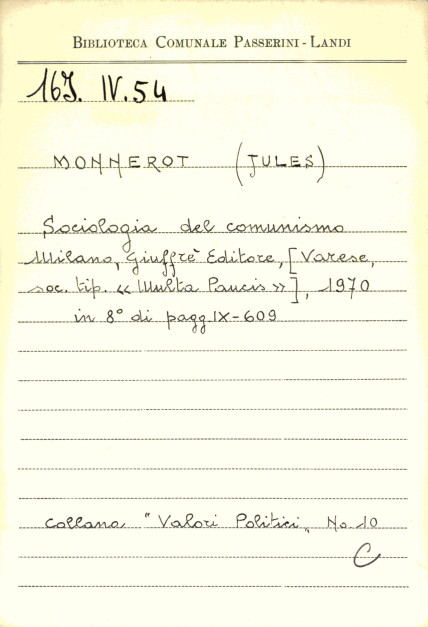 BIBLIOTECA COMUNALE PASSERINI-LANDI
16J. IV. 54
MONNEROT (JULES)
Sociologia del comunismo
Milano, Giuffrè Editore, [Varese,
soc. tip. « Multa Paucis »], 1970
in 8° di pagg. IX-609
Collana "Valori Politici„ No. 10
C